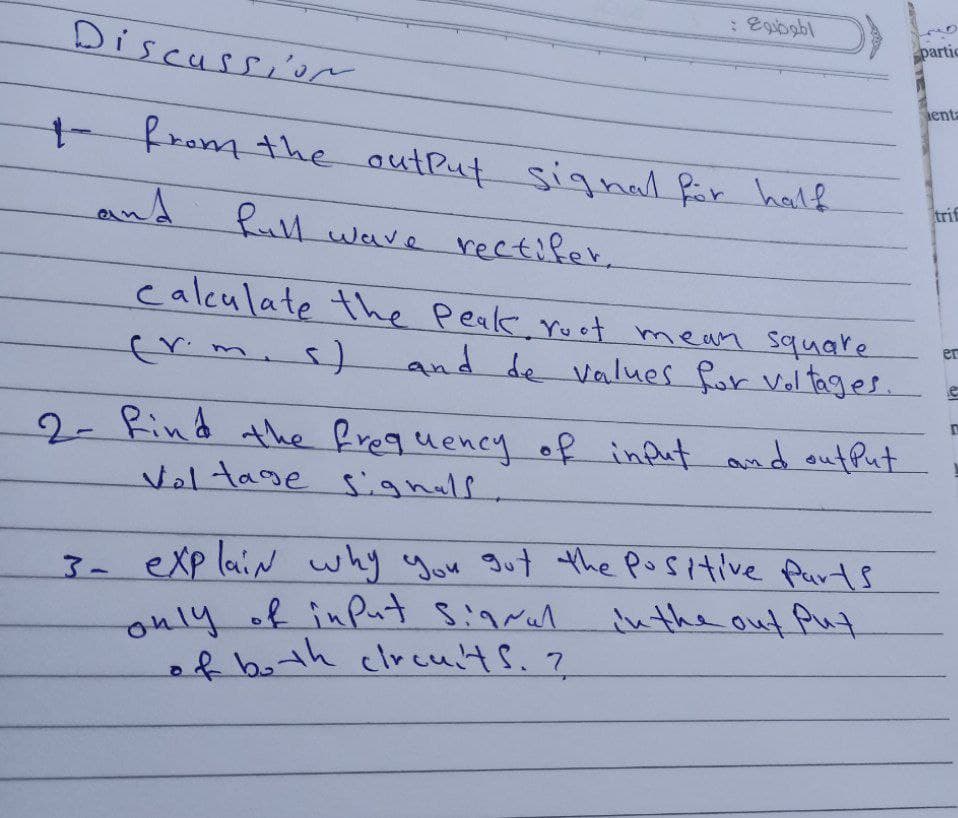 الموضوع :
Discussion
1- from the output signal for half
and full wave rectifer,
calculate the peak, root mean square
(r.m.s) and dc values for voltages.
2- find the frequency of input and output
voltage signals.
3- explain why you got the positive parts
only of input signal in the output
of both circuits. ?
partic
trif